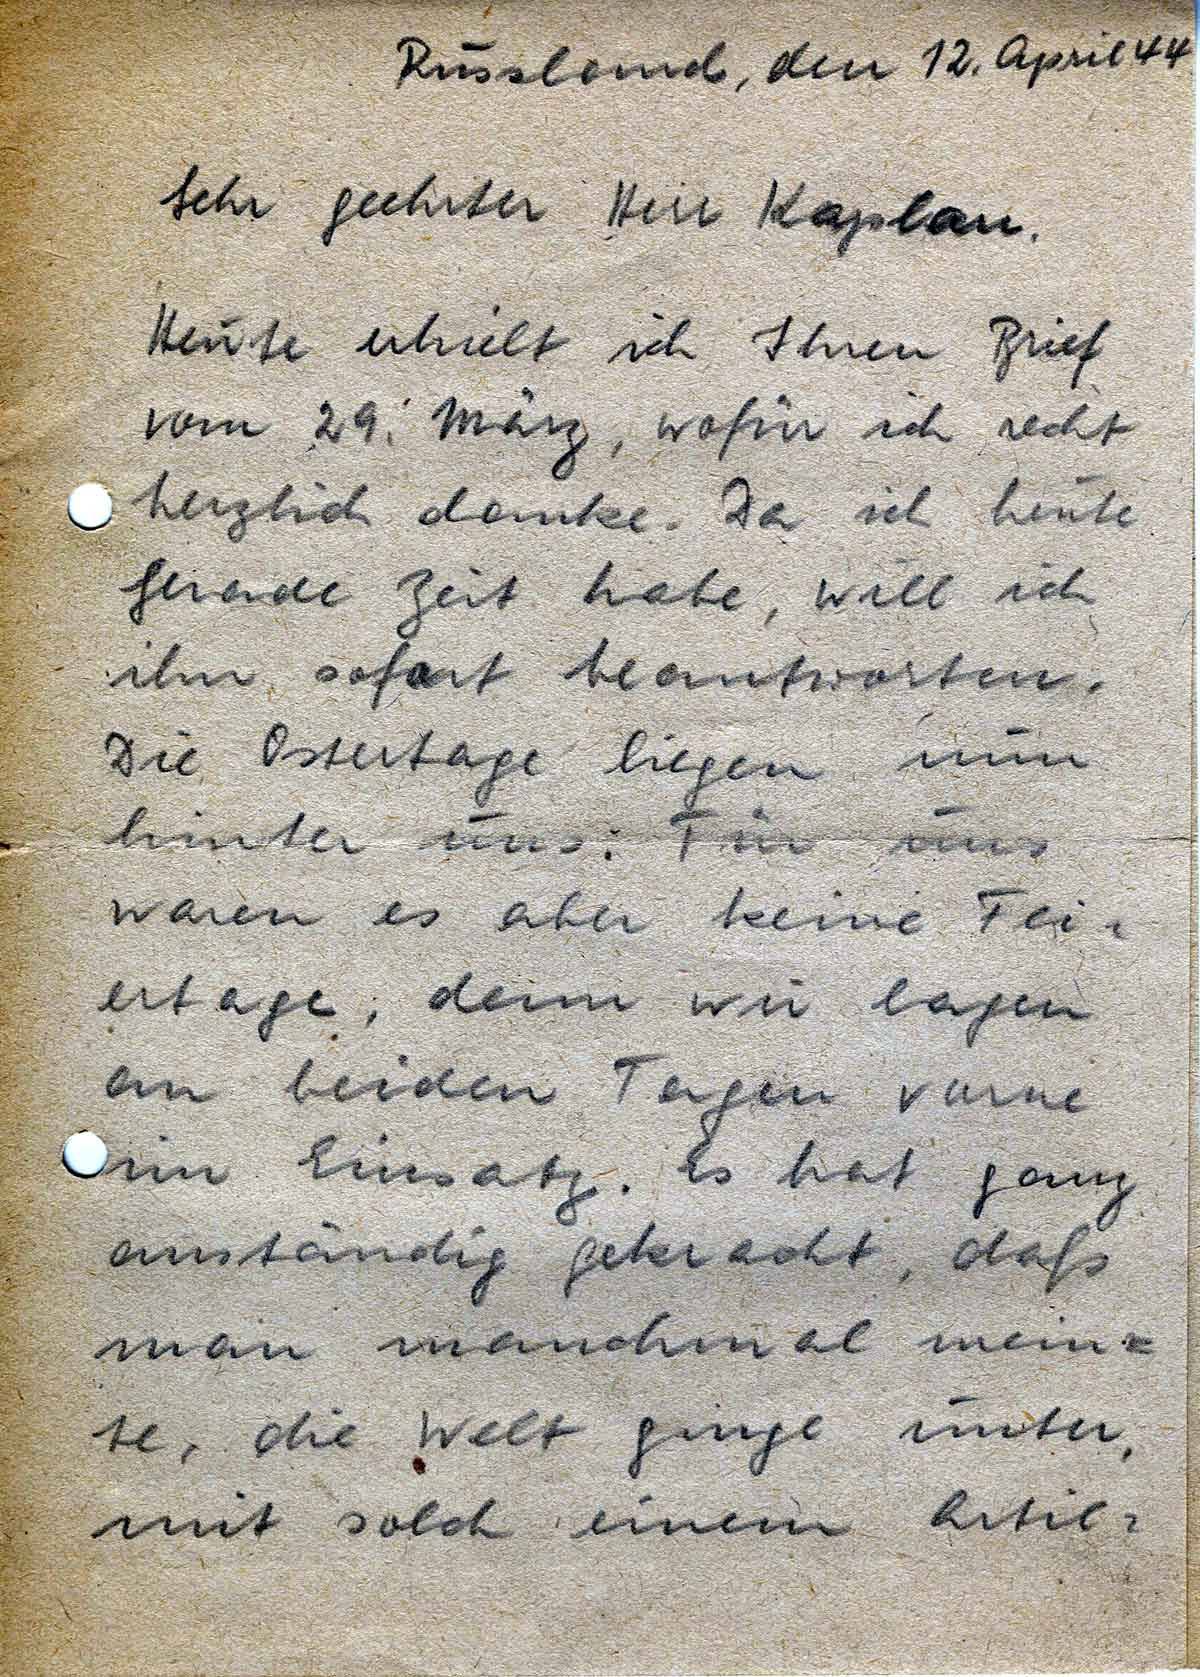 Russland, den 12. April 44
Sehr geehrter Herr Kaplan.
Heute erhielt ich Ihren Brief
vom 29. März, wofür ich recht
herzlich danke. Da ich heute
gerade Zeit habe, will ich
ihn sofort beantworten.
Die Ostertage liegen nun
hinter uns. Für uns
waren es aber keine Fei-
ertage, denn wir lagen
an beiden Tagen vorne
im Einsatz. Es hat ganz
anständig gekracht, daß
man manchmal mein=
te, die Welt ginge unter,
mit solch einem Artil=